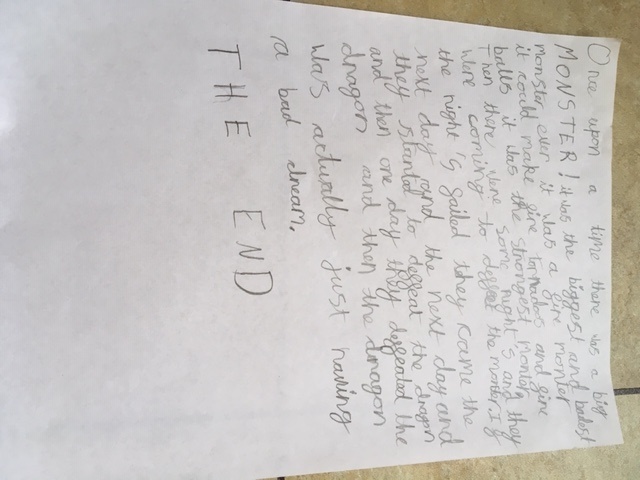 Once upon a time there was a big
MONSTER! it was the biggest and badest
monster ever it was a fire monter
it could make fire tornados and fire
balls it was the strongest monter
Then there were some night's and they
were coming to deffeet the monter. If
the night's failed they came the
next day and the next day and
they started to deffeat the dragon
and then one day they deffeated the
dragon and then the dragon
was actually just having
a bad dream.
THE END